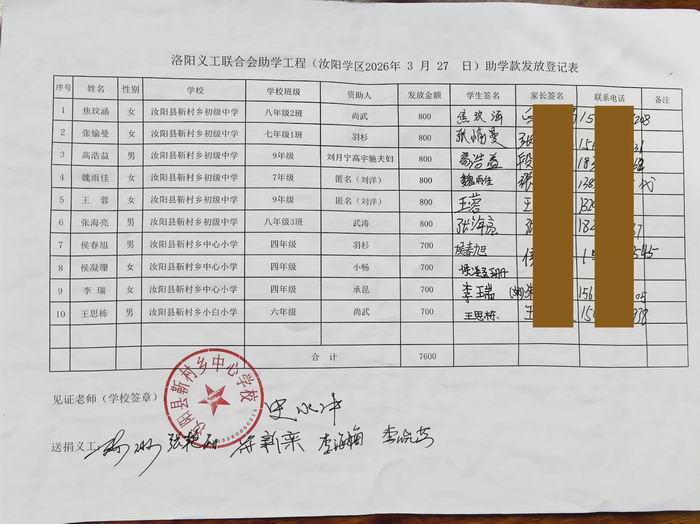 洛阳义工联合会助学工程（汝阳学区2026年 3 月 27 日）助学款发放登记表
序号 姓名 性别 学校 学校班级 资助人 发放金额 学生签名 家长签名 联系电话 备注
1 焦玟涵 女 汝阳县靳村乡初级中学 八年级2班 尚武 800 焦玟涵
2 张愉曼 女 汝阳县靳村乡初级中学 七年级1班 羽杉 800 张愉曼 张
3 高浩益 男 汝阳县靳村乡初级中学 9年级 刘月宁高宇驰夫妇 800 高浩益 段
4 魏雨佳 女 汝阳县靳村乡初级中学 7年级 匿名（刘洋） 800 魏雨佳 张
5 王 蓉 女 汝阳县靳村乡初级中学 9年级 匿名（刘洋） 800 王蓉 王
6 张海亮 男 汝阳县靳村乡初级中学 八年级3班 武涛 800 张海亮
7 侯春旭 男 汝阳县靳村乡中心小学 四年级 羽杉 700 侯春旭
8 侯凝珊 女 汝阳县靳村乡中心小学 四年级 小畅 700 侯凝珊
9 李 瑞 女 汝阳县靳村乡中心小学 四年级 承昆 700 李瑞
10 王思栋 男 汝阳县靳村乡小白小学 六年级 尚武 700 王思栋 王
合 计 7600
见证老师（学校签章）
汝阳县靳村乡中心学校
送捐义工：